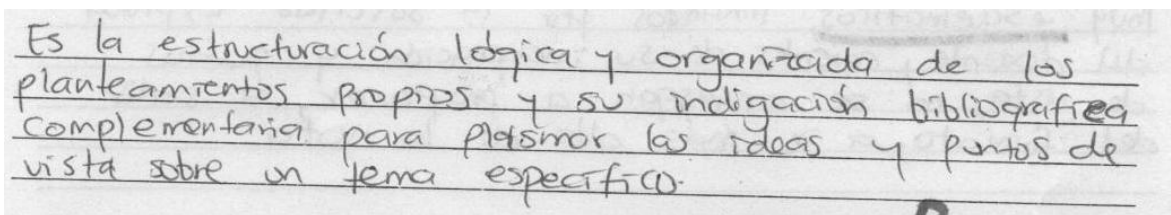 Es la estructuración lógica y organizada de los
planteamientos propios y su indigación bibliografica
complementaria para plasmar las ideas y puntos de
vista sobre un tema específico.